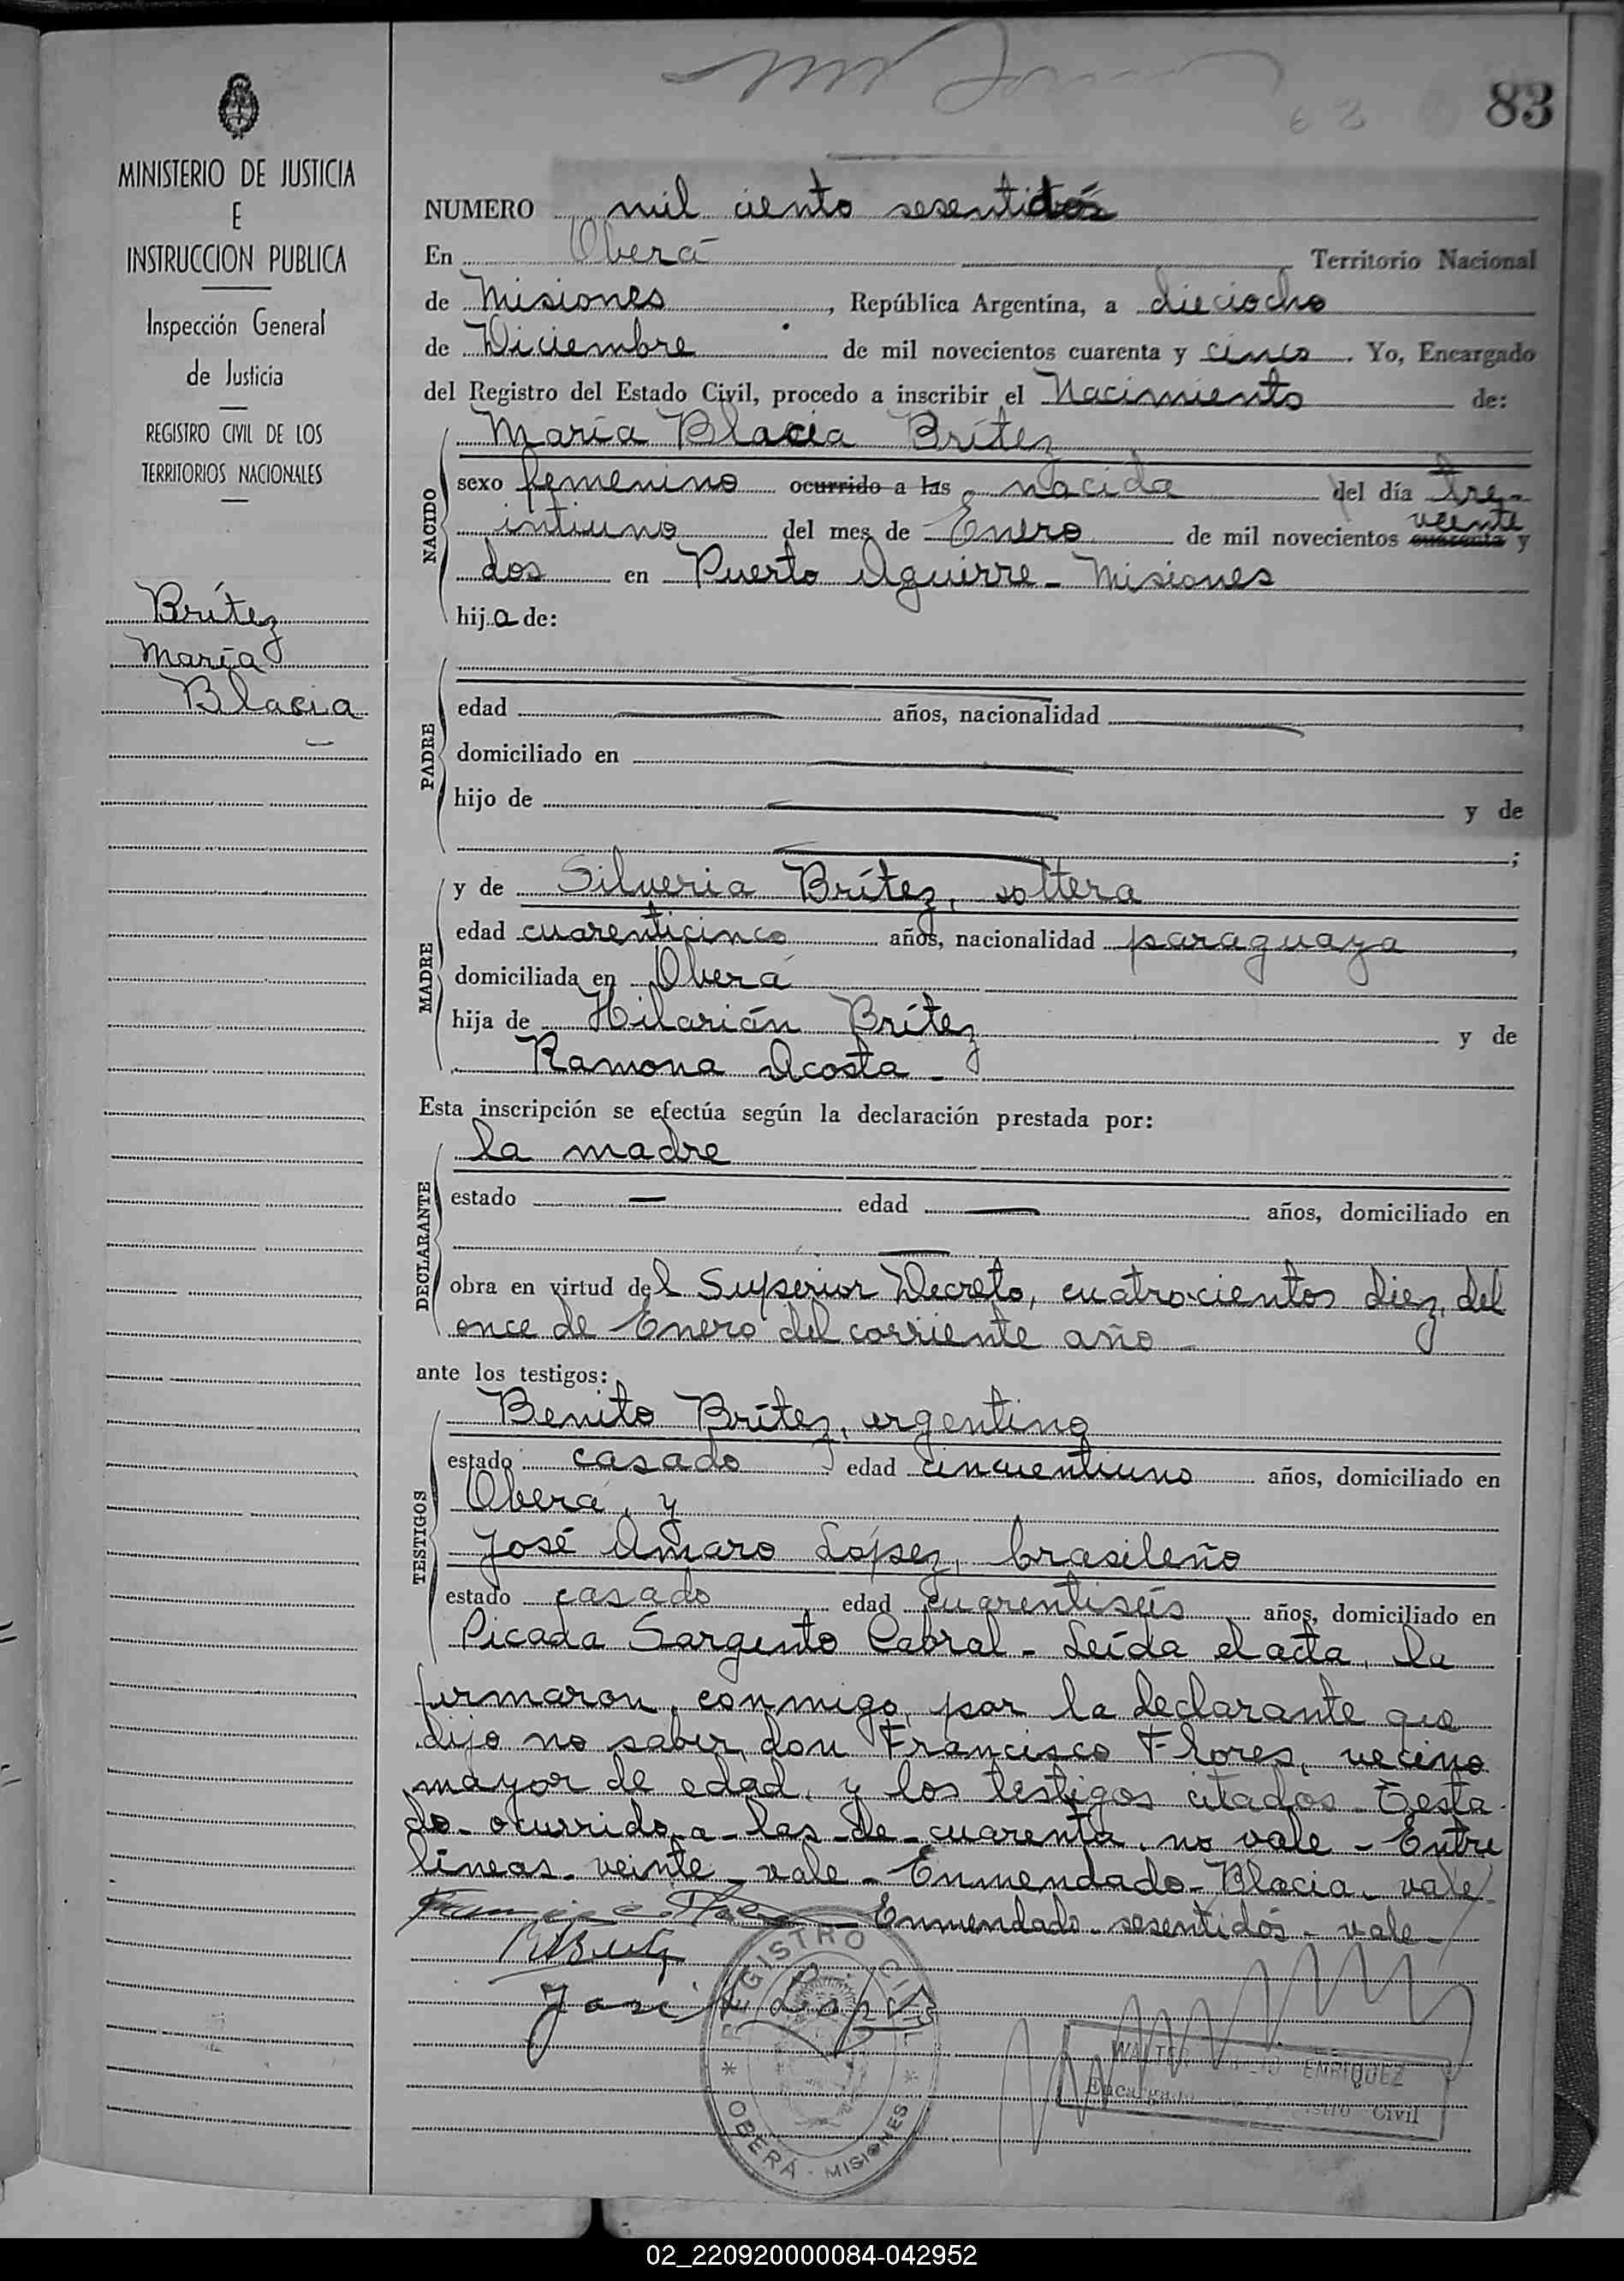 83
MINISTERIO DE JUSTICIA
E
INSTRUCCION PUBLICA
Inspección General
de Justicia
REGISTRO CIVIL DE LOS
TERRITORIOS NACIONALES
Brítez
María
Blacia
NUMERO mil ciento sesentidós
En Oberá Territorio Nacional
de Misiones, República Argentina, a dieciocho
de Diciembre de mil novecientos cuarenta y cinco. Yo, Encargado
del Registro del Estado Civil, procedo a inscribir el Nacimiento de:
María Blacia Brítez
NACIDO
sexo femenino ocurrido a las nacida del día tre-
intiuno del mes de Enero de mil novecientos cuarenta veinte y
dos en Puerto Aguirre - Misiones
hija de:
PADRE
edad años, nacionalidad ,
domiciliado en
hijo de y de
;
MADRE
y de Silveria Brítez, soltera
edad cuarenticinco años, nacionalidad paraguaya,
domiciliada en Oberá
hija de Hilarián Brítez y de
Ramona Acosta -
Esta inscripción se efectúa según la declaración prestada por:
DECLARANTE
la madre
estado — edad — años, domiciliado en
—
obra en virtud del Superior Decreto, cuatrocientos diez, del
once de Enero del corriente año -
ante los testigos:
TESTIGOS
Benito Brítez, argentino
estado casado edad cincuentiuno años, domiciliado en
Oberá, y
José Amaro López, brasileño
estado casado edad cuarentiséis años, domiciliado en
Picada Sargento Cabral - Leída el acta, la
firmaron, conmigo, por la declarante que
dijo no saber, don Francisco Flores, vecino
mayor de edad, y los testigos citados - Testa-
do - ocurrido - a - las - de - cuarenta, no vale - Entre
líneas - veinte - vale - Enmendado - Blacia - vale
- Enmendado - sesentidós - vale -
José López
REGISTRO CIVIL
OBERÁ - MISIONES
ENRIQUEZ
Civil
02_220920000084-042952